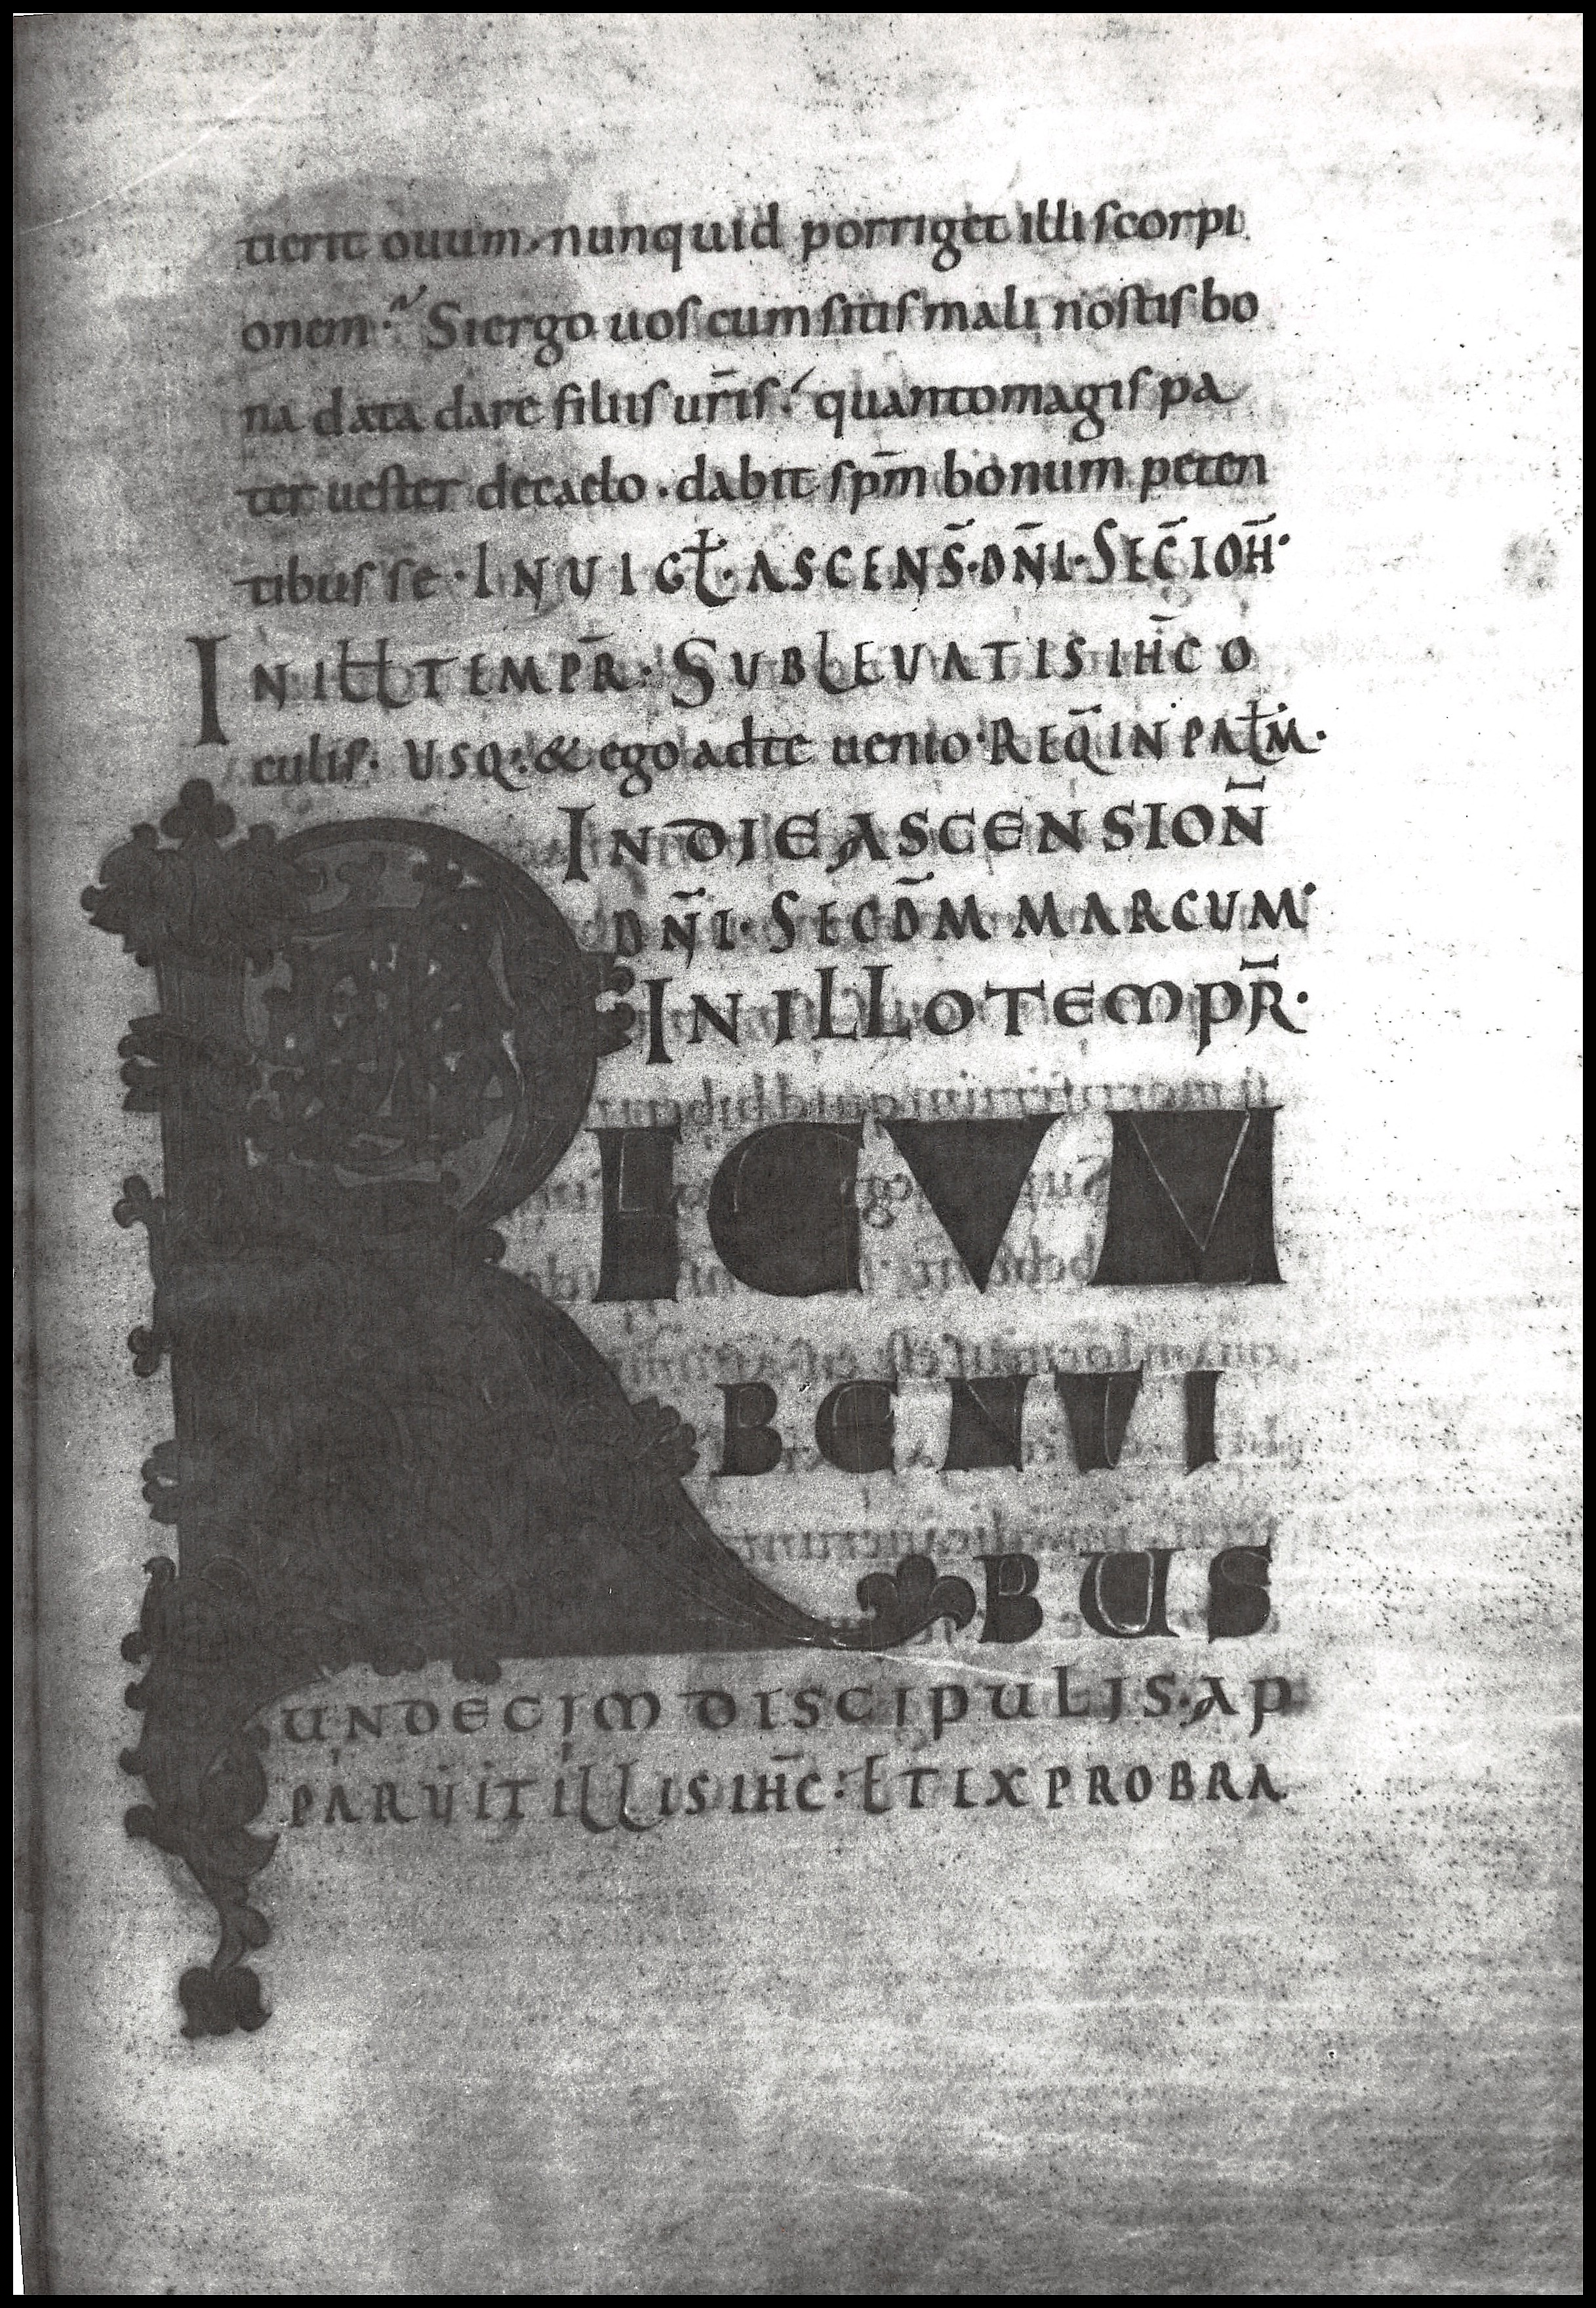 tierit ouum, nunquid porriget illi scorpi
onem? Si ergo uos cum sitis mali nostis bo
na data dare filiis ur̄is: quanto magis pa
ter uester de caelo · dabit sp̄m bonum peten
tibus se · IN UIGꝉ · ASCENS̄ · DN̄I · SEC̄ IOH̄ ·
IN ILL TEMPR̄ · SUBLEUATIS IH̄C O
culis · USQ: & ego ad te uenio · REQ̄ IN PALM̄ ·
IN DIE ASCENSION̄
DN̄I · SECD̄M MARCUM
IN ILLO TEMPR̄ ·
RECUMBENTI
BUS
UNDECIM DISCIPULIS · AP
PARUIT ILLIS IH̄C : ET EXPROBRA